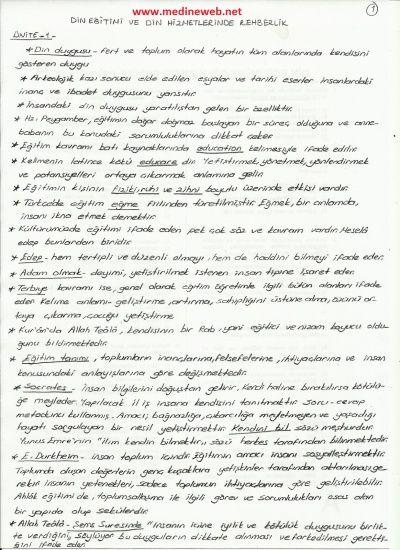 www.medineweb.net
1
DİN EĞİTİMİ VE DİN HİZMETLERİNDE REHBERLİK
ÜNİTE-1-
* Din duygusu - fert ve toplum olarak hayatın tüm alanlarında kendisini
gösteren duygu
* Arkeolojik kazı sonucu elde edilen eşyalar ve tarihi eserler insanlardaki
inanç ve ibadet duygusunu yansıtır.
* İnsandaki din duygusu yaratılıştan gelen bir özelliktir.
* Hz. Peygamber, eğitimin doğar doğmaz başlayan bir süreç olduğuna ve anne-
babanın bu konudaki sorumluluklarına dikkat çeker
* Eğitim kavramı batı kaynaklarında education kelimesiyle ifade edilir.
* Kelimenin latince kökü educare dir. Yetiştirmek, yönetmek, yönlendirmek
ve potansiyelleri ortaya çıkarmak anlamına gelir
* Eğitimin kişinin fiziki, ruhi ve zihni boyutu üzerinde etkisi vardır.
* Türkçede eğitim eğme fiilinden türetilmiştir. Eğmek, bir anlamda,
insanı ikna etmek demektir.
* Kültürümüzde eğitimi ifade eden pek çok söz ve kavram vardır. Meselâ
edep bunlardan biridir.
* Edep - hem tertipli ve düzenli olmayı, hem de haddini bilmeyi ifade eder.
* Adam olmak - deyimi, yetiştirilmek istenen insan tipine işaret eder.
* Terbiye kavramı ise, genel olarak eğitim öğretimle ilgili bütün alanları ifade
eder. Kelime anlamı - geliştirme, artırma, sahipliğini üstüne alma, özünü or-
taya çıkarma, çocuğu yetiştirme
* Kur'ân'da Allah Teâlâ, kendisinin bir Rab yani eğitici ve nizam koyucu oldu-
ğunu bildirmektedir.
* Eğitim tanımı, toplumların inançlarına, felsefelerine, ihtiyaçlarına ve insan
konusundaki anlayışlarına göre değişmektedir.
* Socrates - insan bilgilerini doğuştan getirir. Kendi haline bırakılırsa kötülü-
ğe meyleder. Yapılacak ilk iş insana kendisini tanıtmaktır. Soru-cevap
metodunu kullanmış. Amacı; bağnazlığa, çıkarcılığa meyletmeyen ve yaşadığı
hayatı sorgulayan bir nesil yetiştirmektir. Kendini bil sözü meşhurdur.
Yunus Emre'nin "ilim kendin bilmektir" sözü herkes tarafından bilinmektedir.
* E. Durkheim - insan toplum içindir. Eğitimin amacı insanı sosyalleştirmektir.
Toplumda oluşan değerlerin genç kuşaklara yetişkinler tarafından aktarılması ge-
rekir. İnsanın yetenekleri, sadece toplumun ihtiyaçlarına göre geliştirilebilir.
Ahlâk eğitimi de, toplumsallaşma ile ilgili görev ve sorumlulukları esas alan
bir yapıda olup sekülerdir.
* Allah Teâlâ - Şems Suresinde, "insanın içine iyilik ve kötülük duygusunu birlik-
te verdiğini, söylüyor bu duyguların dikkate alınması ve farkedilmesi gerekti-
ğini ifade eder.